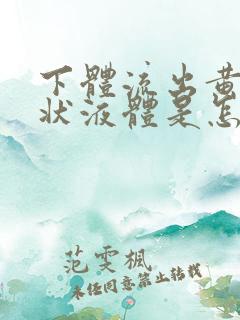 下體流出黄
狀液體是怎
范雯楓
未经同意禁止转载